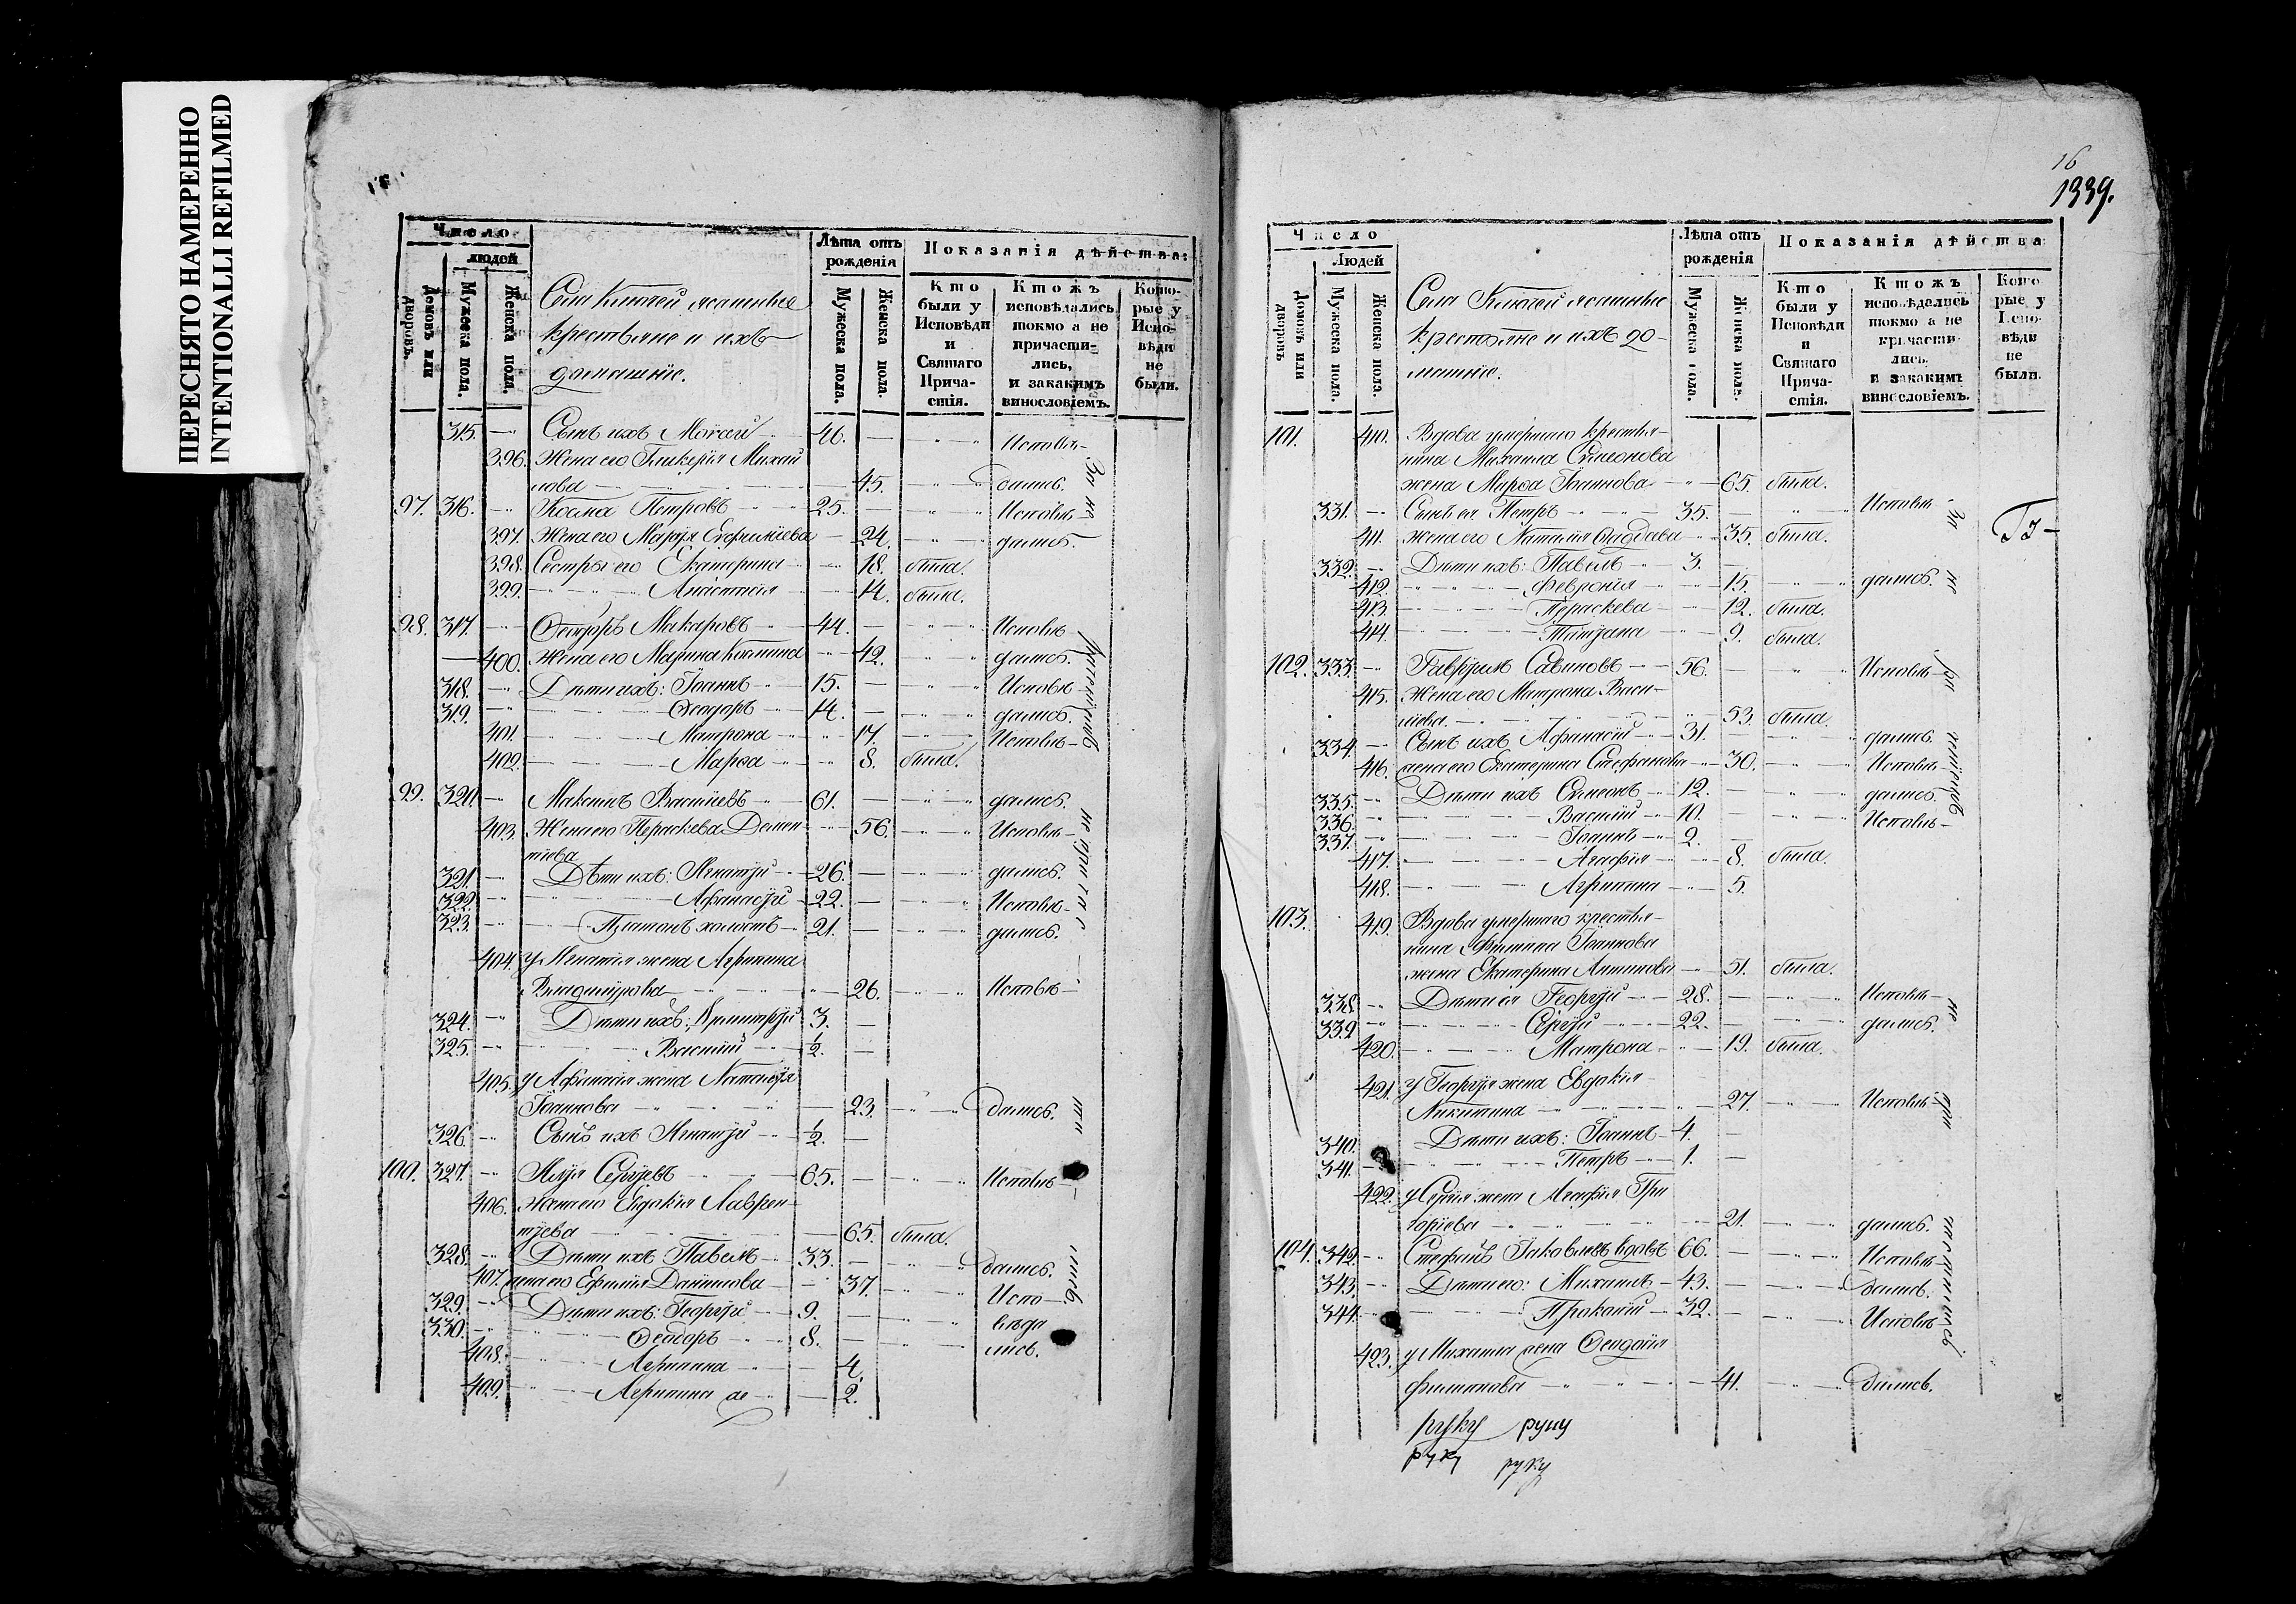 ПЕРЕСНЯТО НАМЕРЕННО
INTENTIONALLI REFILMED
Число
людей
Домовъ или дворовъ.
Мужеска пола.
Женска пола.
крестьяне и ихъ
домашніе.
Лѣта отъ рожденія
Мужеска пола.
Женска пола.
Показанія дѣйства:
Кто были у Исповѣди и Святаго Прича-стія.
Ктожъ исповѣдались токмо а не причасти-лись, и закакимъ винословіемъ.
Кото-рые у Испо-вѣди не были.
315. Сынъ ихъ Моѵсей 46. Исповѣ-
396. Жена его Гликерія Михай
лова 45. дались.
97. 316. Косма Петровъ 25. Исповѣ-
397. Жена его Марія 24. дались.
398. Сестры его Екатерина 18. была.
399. Анастасія 14. была.
98. 317. Ѳеодоръ Макаровъ 44. Исповѣ-
400. Жена его Марина Космина 42. дались.
318. Дѣти ихъ: Іоаннъ 15. Исповѣ-
319. Ѳеодоръ 14. дались.
401. Матрона 17. Исповѣ-
402. Марѳа 8. была.
99. 320. Максимъ Васильевъ 61. дались.
403. Жена его Параскева Демен 56. Исповѣ-
тіева
321. Дѣти ихъ: Игнатій 26. дались.
322. Афанасій 22. Исповѣ-
323. Платонъ холостъ 21. дались.
404. у Игнатія жена Агрипина
Владимірова 26. Исповѣ-
324. Дѣти ихъ: Димитрій 3.
325. Василій ½.
405. у Афанасія жена Наталія
Іоаннова 23. дались.
326. Сынъ ихъ Игнатій ½.
100. 327. Илія Сергіевъ 65. Исповѣ-
406. Жена его Евдокія Лаврен-
тіева 65. была.
328. Дѣти ихъ Павелъ 33. дались.
407. жена его Ефимія Данилова 37. Испо-
329. Дѣти ихъ: Георгій 9. вѣда
330. Ѳеодоръ 8. лись.
408. Агрипина 4.
409. Агрипина 2.
16
1339.
Число
Людей
Домовъ или дворовъ
Мужеска пола.
Женска пола.
крестьяне и ихъ до-
машніе.
Лѣта отъ рожденія
Мужеска пола.
Женска пола.
Показанія дѣйства
Кто были у Исповѣди и Святаго Прича-стія.
Ктожъ исповѣдались токмо а не причасти-лись. и закакимъ винословіемъ.
Кото-рые у Испо-вѣди не были.
101. 410. Вдова умершаго крестья-
нина Михаила Симеонова
жена Марѳа Іоаннова 65. была.
331. Сынъ ея Петръ 35. Исповѣ-
411. жена его Наталія Ѳаддеева 35. была.
332. Дѣти ихъ: Павелъ 3.
412. Февронія 15. дались.
413. Параскева 12. была.
414. Татіана 9. была.
102. 333. Гавріилъ Савиновъ 56. Исповѣ-
415. Жена его Матрона Васи-
лиева 53. была.
334. Сынъ ихъ Афанасій 31. дались.
416. жена его Екатерина Стефанова 30. Исповѣ-
335. Дѣти ихъ Симеонъ 12. дались.
336. Василій 10. Исповѣ-
337. Іоаннъ 2.
417. Агафія 8. была.
418. Агрипина 5.
103. 419. Вдова умершаго крестья-
нина Филиппа Іоаннова
жена Екатерина Антипова 51. была.
338. Дѣти ея Георгій 28. Исповѣ-
339. Сергій 22. дались.
420. Матрона 19. была.
421. у Георгія жена Евдокія
Никитина 27. Исповѣ-
340. Дѣти ихъ: Іоаннъ 4.
341. Петръ 1.
422. у Сергія жена Агафія Гри
горіева 21. дались.
104. 342. Стефанъ Іаковлевъ вдовъ 66. Исповѣ-
343. Дѣти его: Михаилъ 43. дались.
344. Прокопій 32. Исповѣ-
423. у Михаила жена Ѳеодосія
Филипова 41. дались.
руку руцу
руку руку